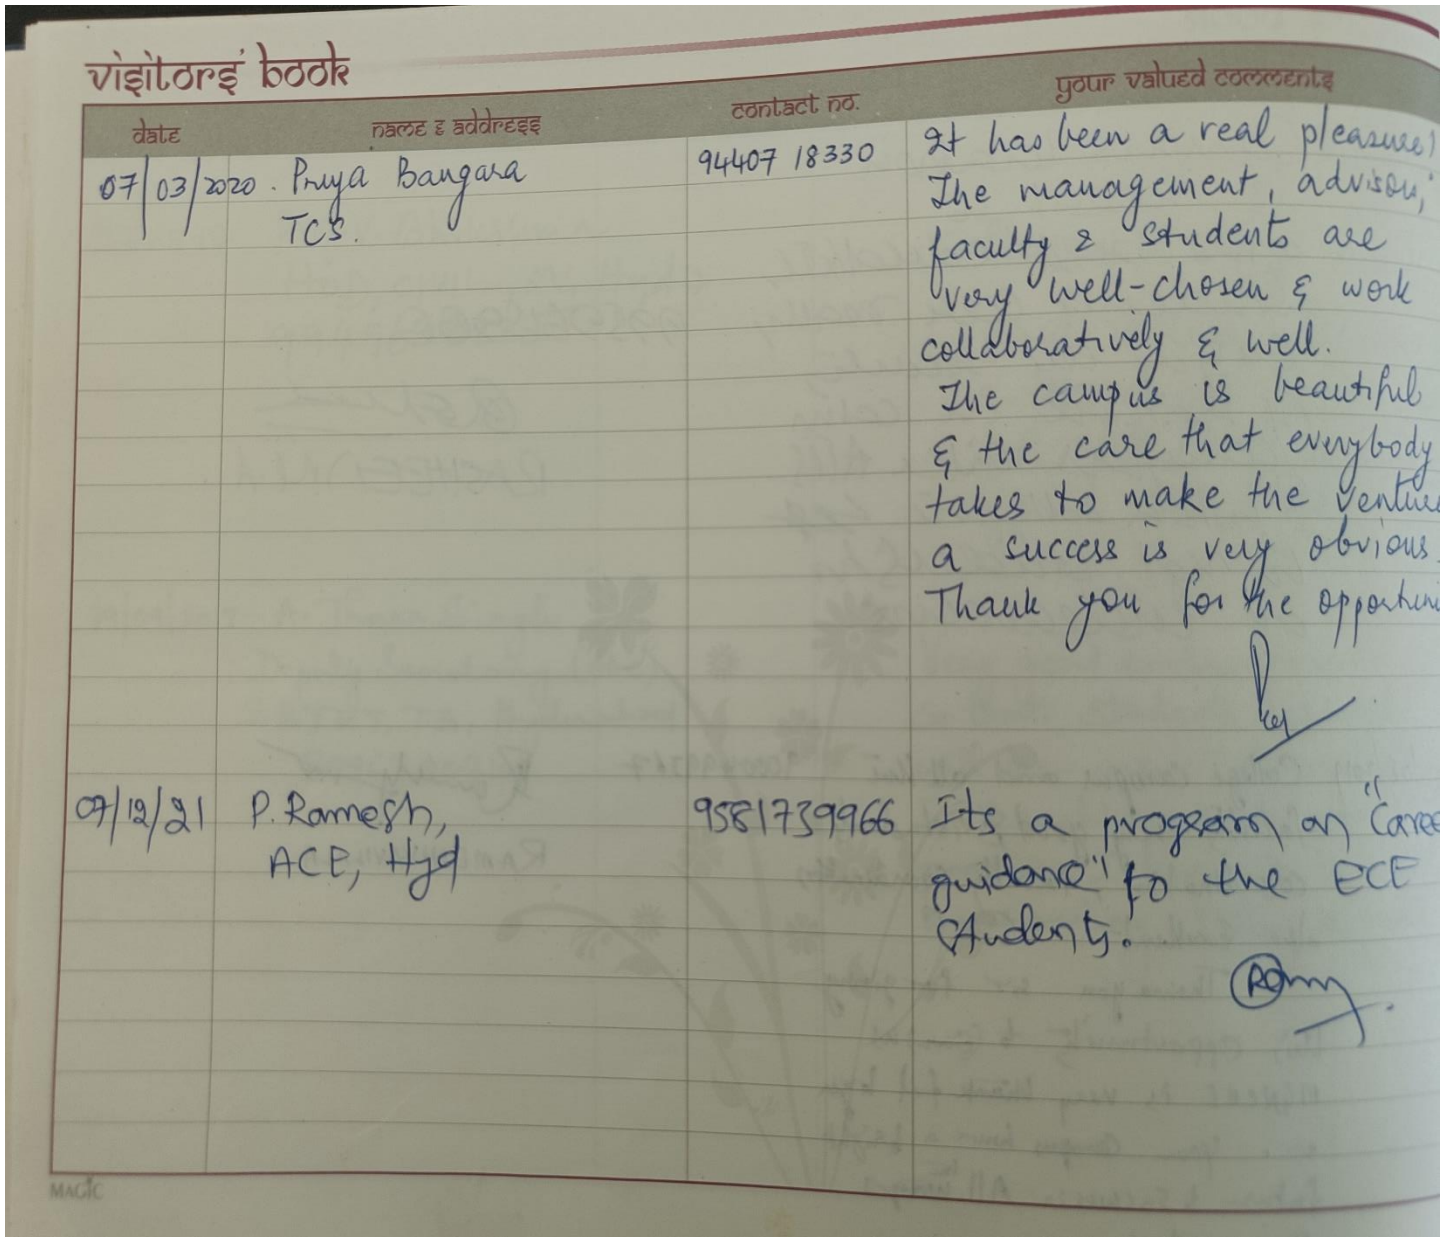 visitors' book
date name & address contact no. your valued comments
07/03/2020. Priya Bangara 94407 18330 It has been a real pleasure!
TCS. The management, advisory,
faculty & students are
very well-chosen & work
collaboratively & well.
The campus is beautiful
& the care that everybody
takes to make the venture
a success is very obvious.
Thank you for the opportuni
07/12/21 P. Ramesh, 9581739966 Its a program on "Caree
ACE, Hyd guidance" to the ECE
students.
MAGIC